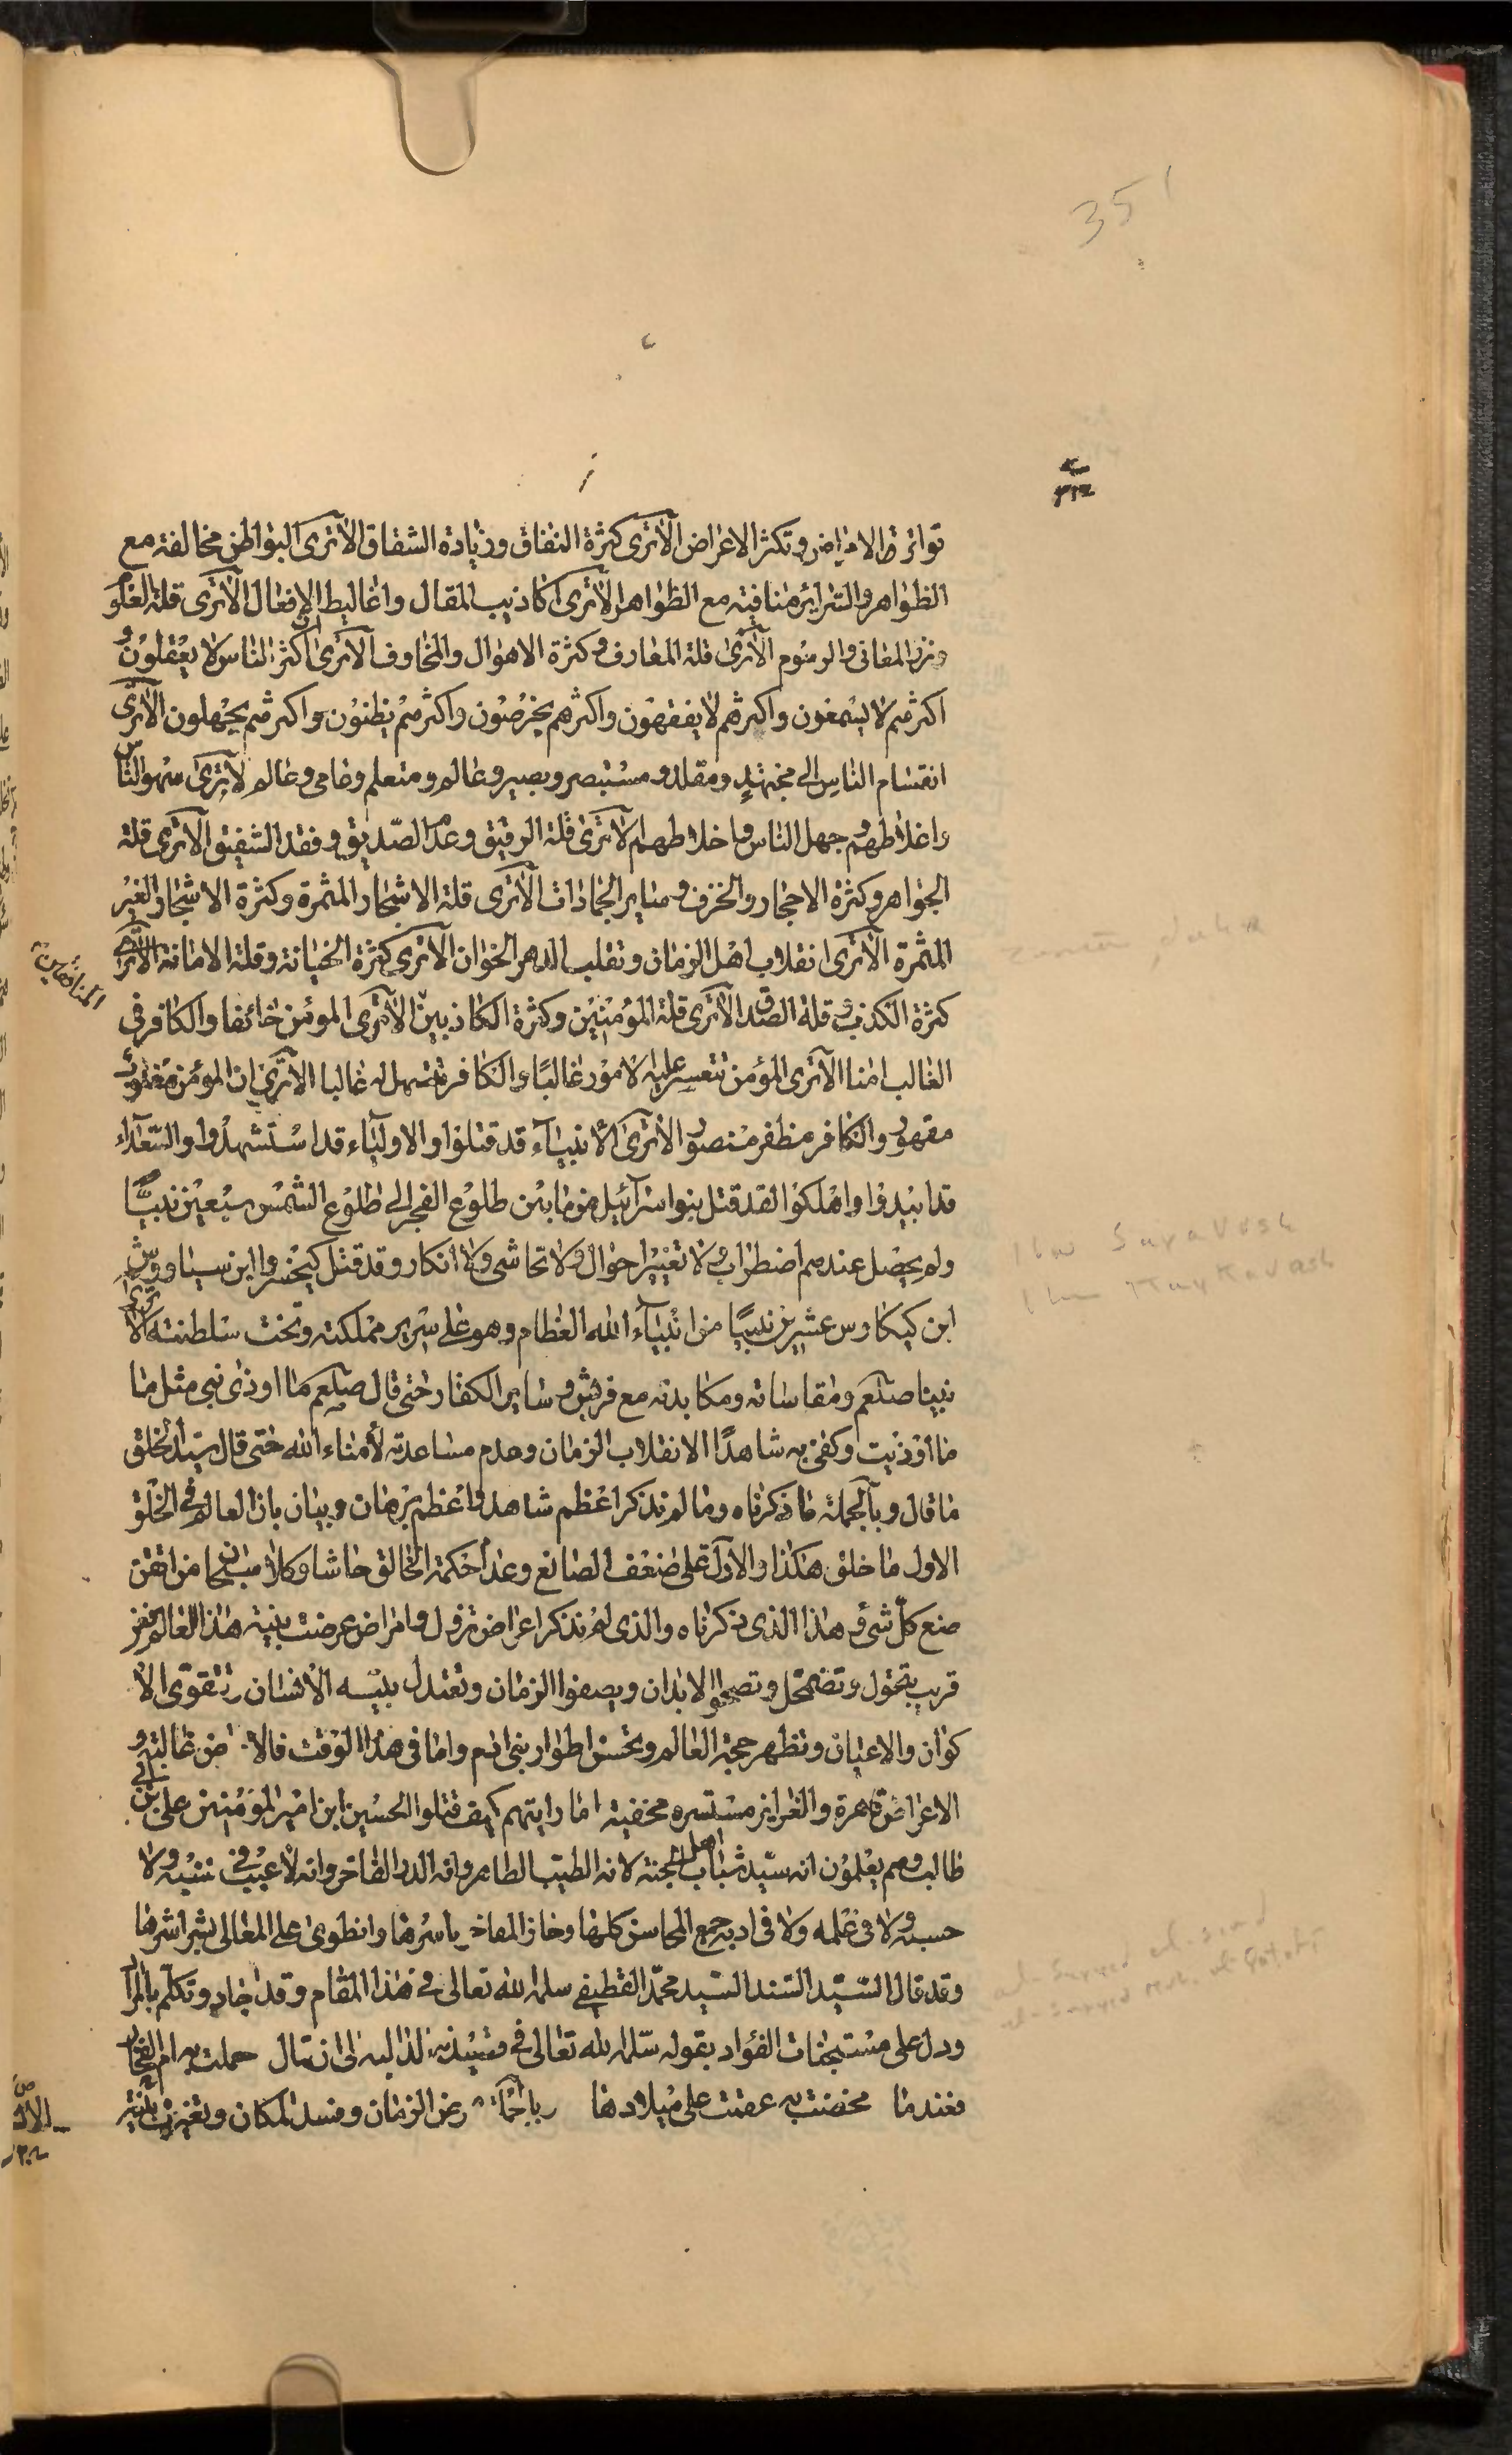 351
٣١٢
تواتر الامراض وتكثر الاغراض الاترى كثرة النفاق وزيادة الشقاق الاترى البواطن مخالفة مع
الظواهر والسرائر منافية مع الظواهر الاترى اكاذيب المقال واغاليط الافعال الاترى قلة العلو
المعانى والرسوم الاترى قلة المعارف وكثرة الاهوال والمخاوف الاترى ان اكثر الناس لا يعقلون و
اكثرهم لا يسمعون واكثرهم لا يفقهون واكثرهم يخرصون واكثرهم يظنون واكثرهم يجهلون الاترى
انقسام الناس الى مجتهد ومقلد ومستبصر وبصير وعالم ومتعلم وعامى وعالم الاترى سهو الناس
واغلاطهم وجهل الناس واخلاطهم الاترى قلة الرفيق وعدم الصديق وفقد الشفيق الاترى قلة
الجواهر وكثرة الاحجار والخزف وساير الجمادات الاترى قلة الاشجار المثمرة وكثرة الاشجار الغير
المثمرة الاترى انقلاب اهل الزمان وتقلب الدهر الخوان الاترى كثرة الخيانة وقلة الامانة الاترى
كثرة الكذب وقلة الصدق الاترى قلة المؤمنين وكثرة الكاذبين الاترى المومن خائفا والكافر فى
الغالب امنا الاترى المؤمن تتعسر عليه الامور غالبًا والكافر تتسهل له غالبا الاترى ان المؤمن
مقهور والكافر مظفر منصور الاترى الأنبيآء قد قتلوا والاوليآء قد استشهدوا والسعدآء
قد ابيدوا واهلكوا لقد قتل بنوا سرآئيل من مابين طلوع الفجر الى طلوع الشمس سبعين نبيًّا
ولم يحصل عندهم اضطراب ولا تغيير احوال ولا تحاشى ولا انكار وقد قتل كيخسرو ابن سياووش
ابن كيكاوس عشرين نبيًا من انبيآء الله العظام وهو على سرير مملكته وتخت سلطنته الاترى
نبينا صلعم ومقاساته ومكابدته مع قريش وساير الكفار حتى قال صلعم ما اوذى نبى مثل ما
ما أوذيت وكفى به شاهدًا الانقلاب الزمان وعدم مساعدته لأمناء الله حتى قال سيد الخلق
ما قال وبآلجملة ما ذكرناه ومالم نذكر اعظم شاهد واعظم برهان وبيان بان العالم فى الخلق
الاول ما خلق هكذا والا دل على ضعف الصانع وعدم حكمة الخالق حاشا وكلا سبحان من اتقن
صنع كل شئ هذا الذى ذكرناه والذى لم نذكر اعراض تزول وامراض عرضت بنية هذا العالم فعن
قريب تتحول وتضمحل وتصحوا الابدان ويصفوا الزمان وتعتدل بنيسه الانسان وتتقوى الأ
كوان والاعيان وتظهر حجة العالم وتحسن اطوار بنى ادم واما فى هذا الوقت غالبة و
الاعراض قاهرة والغرايز مستسره مخفية اما رايتهم كيف قتلوا الحسين ابن امير المؤمنين على بن ابى
طالب وهم يعلمون انه سيد شباب اهل الجنة لانه الطيب الطاهر وانه الدر الفاخر وانه لا عيب فى نسبه ولا
حسبه ولا فى علمه ولا فى ادبه جمع المحاسن كلها وحاز المفاخر باسرها وانطوى على المعالى بشراشرها
وقد قال السيد السند السيد محمد القطيفى سلمه الله تعالى فى هذا المقام وقد اجاد وتكلم بالمراد
ودل على مستجنات الفؤاد بقوله سلمه الله تعالى فى قصيدته الى ان قال حملت به ام
فعندما مخضت به عقمت على ميلادها الزمان وفسد المكان وتغيرت